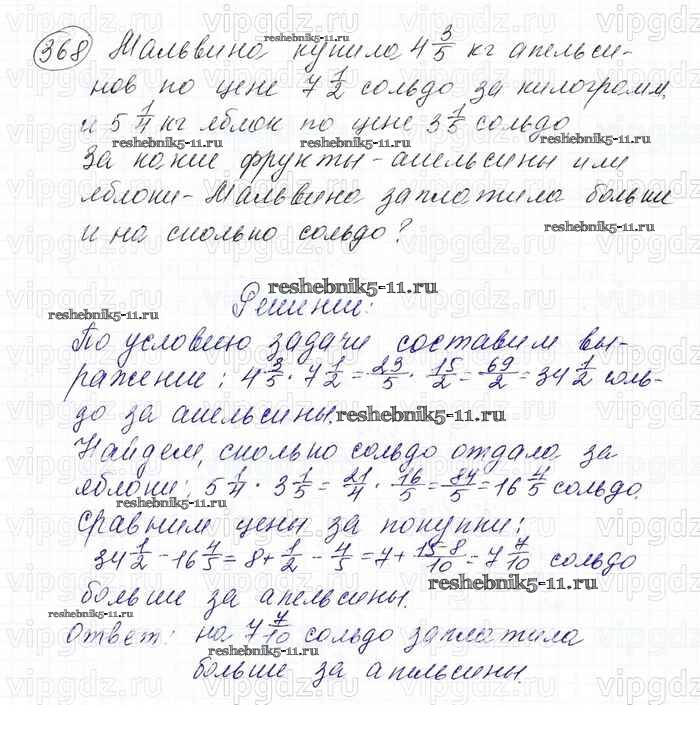 368 Мальвина купила 4 3/5 кг апельси-
нов по цене 7 1/2 сольдо за килограмм,
и 5 1/4 кг яблок по цене 3 1/5 сольдо.
За какие фрукты - апельсины или
яблоки - Мальвина заплатила больше
и на сколько сольдо?
reshebnik5-11.ru
Решение:
По условию задачи составим вы-
ражение: 4 3/5 · 7 1/2 = 23/5 · 15/2 = 69/2 = 34 1/2 соль-
до за апельсины.
Найдем, сколько сольдо отдала за
яблоки: 5 1/4 · 3 1/5 = 21/4 · 16/5 = 84/5 = 16 4/5 сольдо.
Сравним цены за покупки:
34 1/2 - 16 4/5 = 8 + 1/2 - 4/5 = 7 + 15-8/10 = 7 7/10 сольдо
больше за апельсины.
Ответ: на 7 7/10 сольдо заплатила
больше за апельсины.
vipgdz.ru